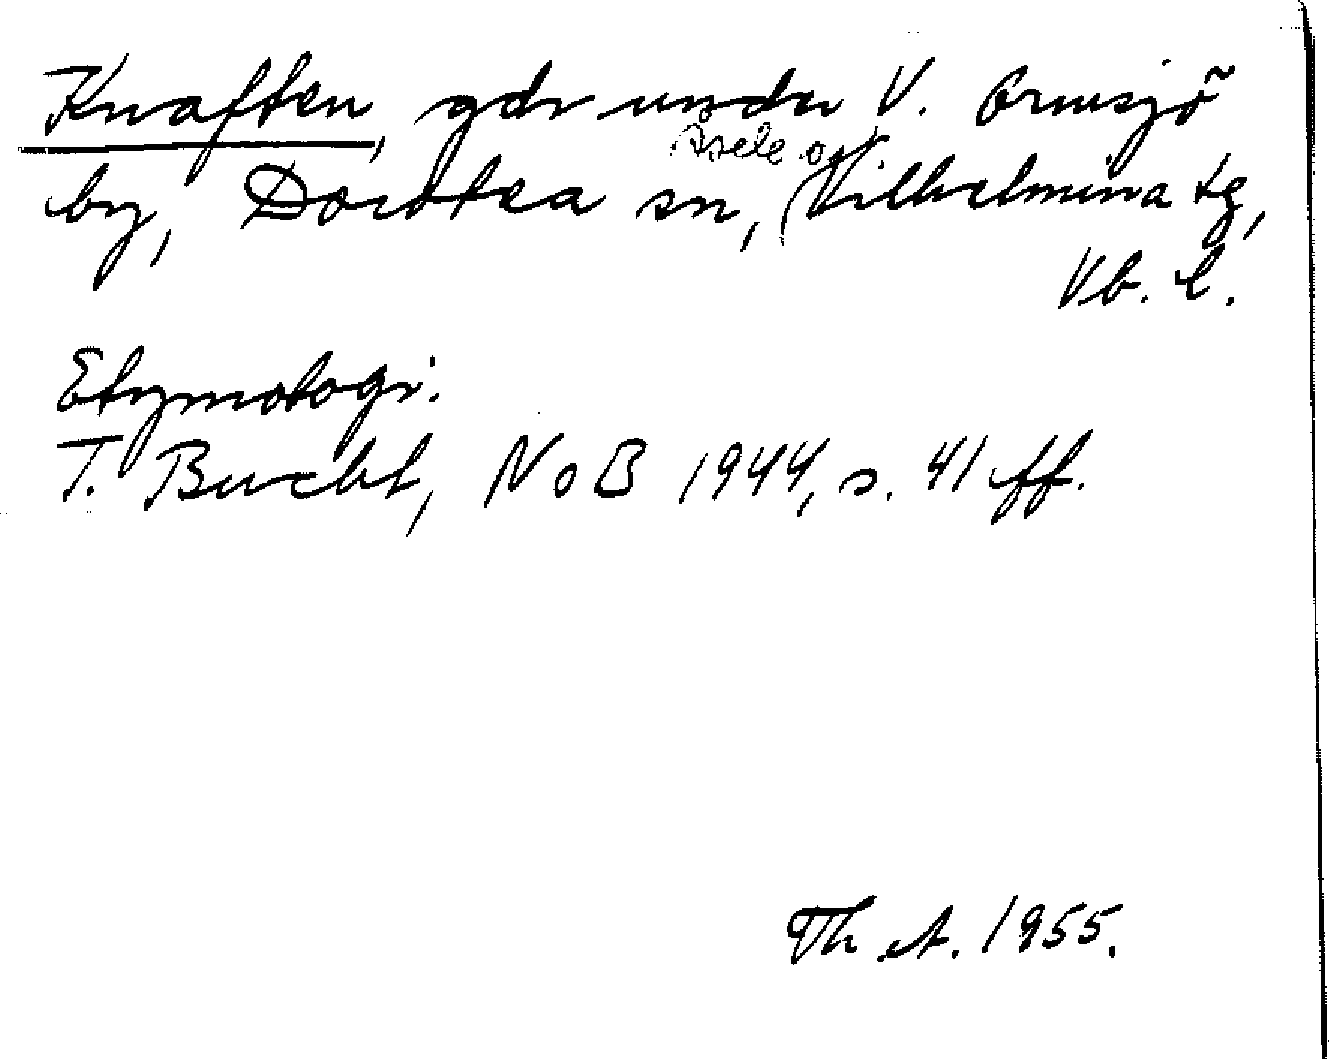 Knaften, gdr under V. Ormsjö
Åsele o.
by, Dorotea sn, Vilhelmina tg,
Vb. l.
Etymologi:
T. Bucht, NoB 1944, s. 41 ff.
Th. A. 1955.